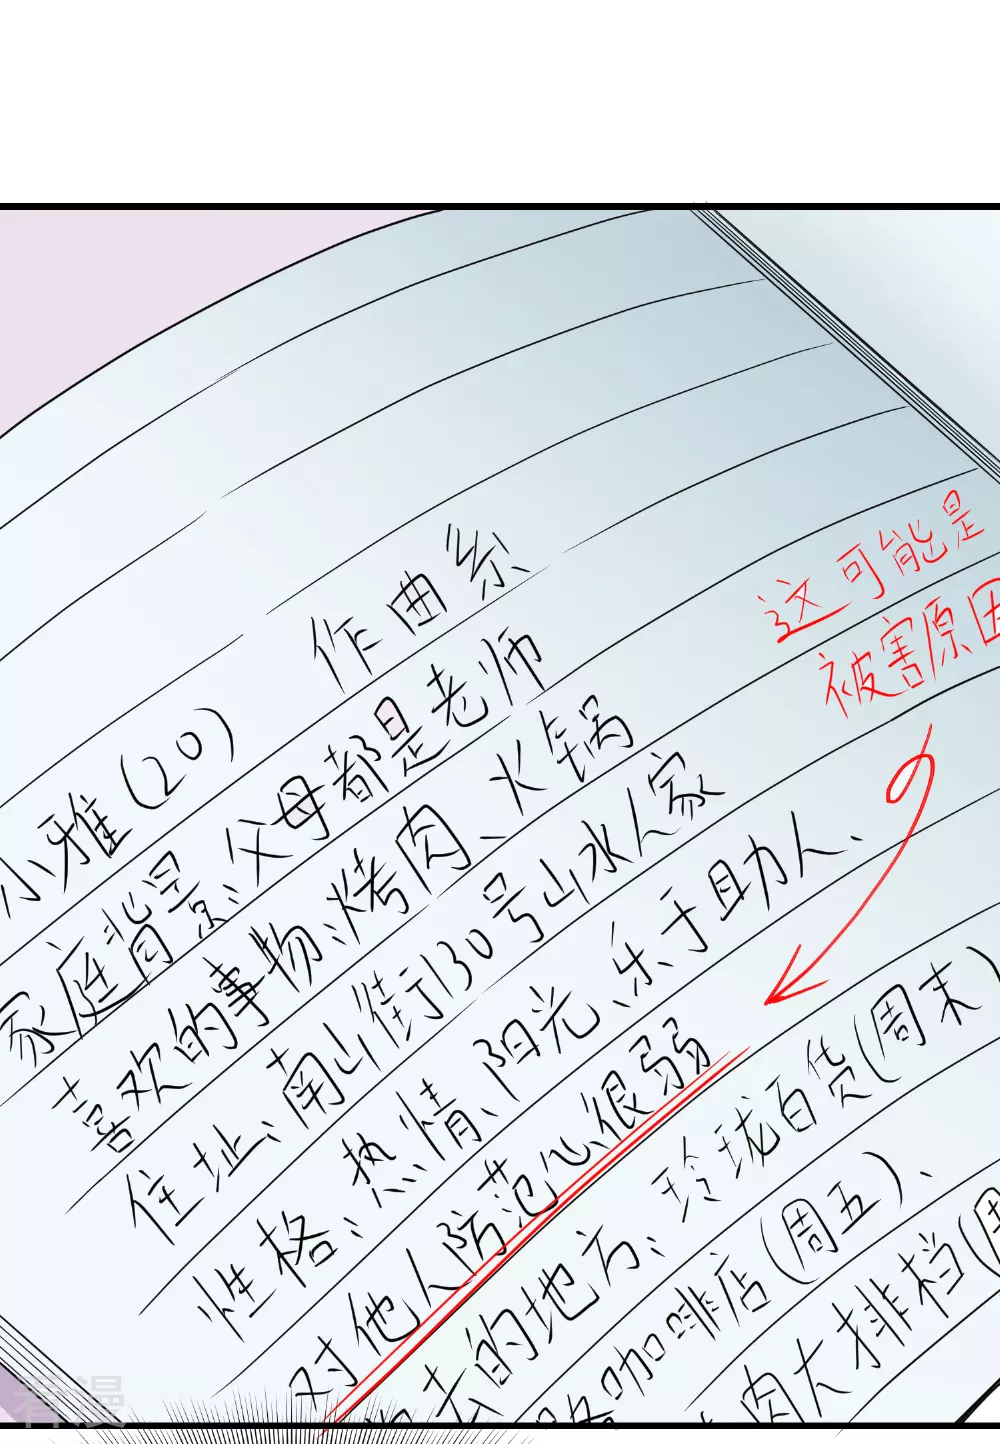 作曲系
小雅(20)
家庭背景、父母都是老师
喜欢的事物:烤肉、火锅
住址、南山街130号山水人家
性格、热情、阳光、乐于助人、
对他人防范心很弱
去的地方:玲珑百货(周末)
咖啡店(周五)、
肉大排档(周
这可能是
被害原因
看漫